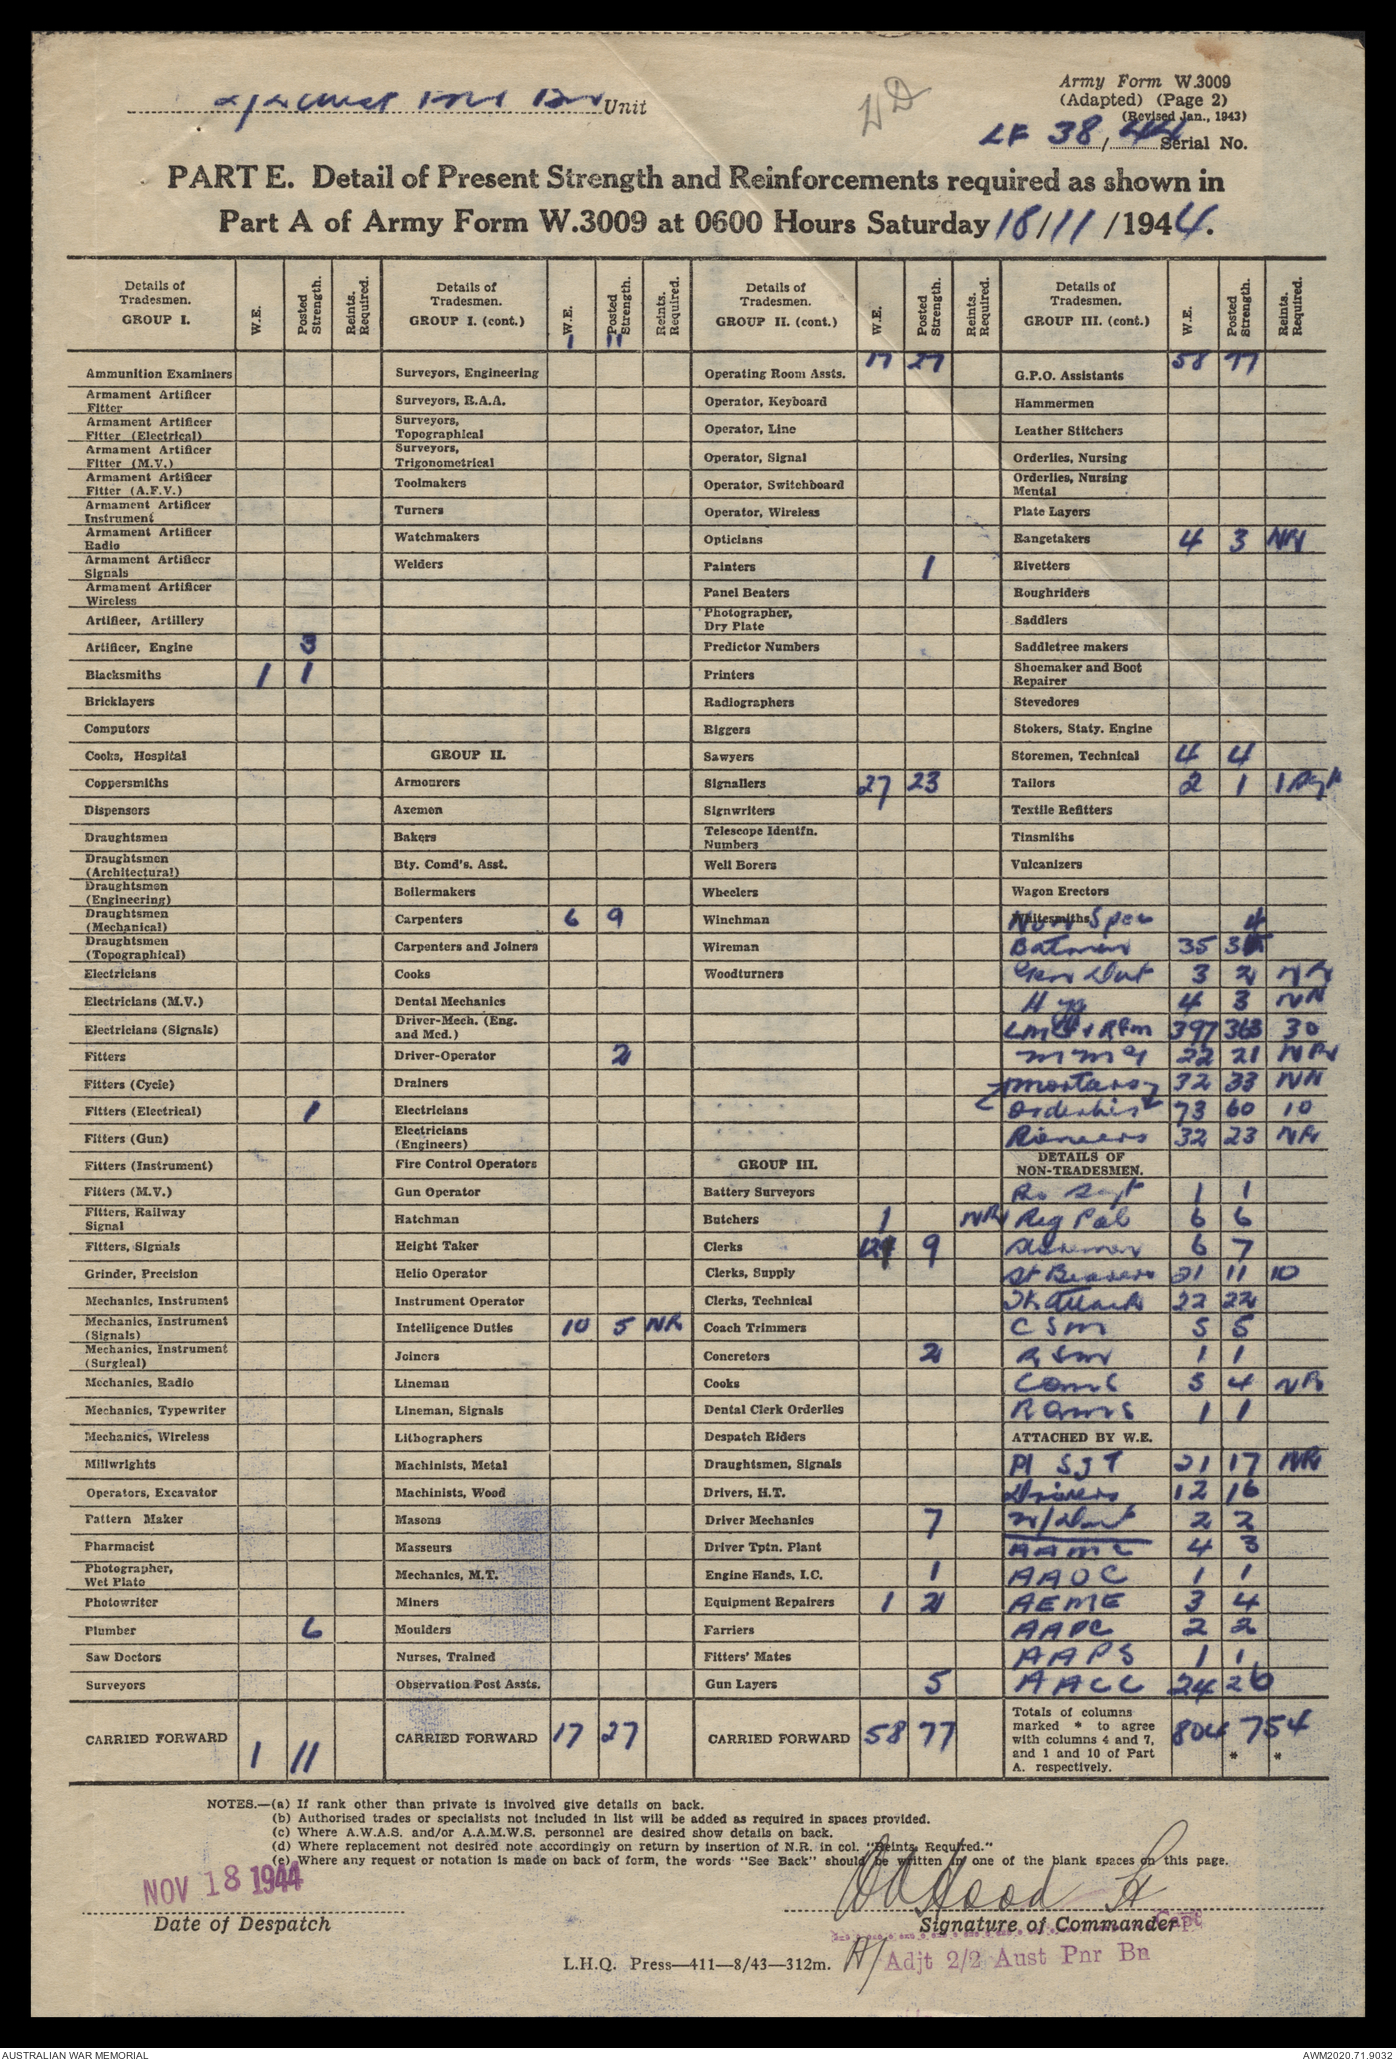 2/2 Aust Pnr Bn Unit
WD
Army Form W.3009
(Adapted) (Page 2)
(Revised Jan., 1943)
LF 38/44 Serial No.
PART E. Detail of Present Strength and Reinforcements required as shown in
Part A of Army Form W.3009 at 0600 Hours Saturday 18/11/1944.
Details of Tradesmen. GROUP I. W.E. Posted Strength. Reints. Required.
Ammunition Examiners
Armament Artificer Fitter
Armament Artificer Fitter (Electrical)
Armament Artificer Fitter (M.V.)
Armament Artificer Fitter (A.F.V.)
Armament Artificer Instrument
Armament Artificer Radio
Armament Artificer Signals
Armament Artificer Wireless
Artificer, Artillery
Artificer, Engine 3
Blacksmiths 1 1
Bricklayers
Computors
Cooks, Hospital
Coppersmiths
Dispensers
Draughtsmen
Draughtsmen (Architectural)
Draughtsmen (Engineering)
Draughtsmen (Mechanical)
Draughtsmen (Topographical)
Electricians
Electricians (M.V.)
Electricians (Signals)
Fitters
Fitters (Cycle)
Fitters (Electrical) 1
Fitters (Gun)
Fitters (Instrument)
Fitters (M.V.)
Fitters, Railway Signal
Fitters, Signals
Grinder, Precision
Mechanics, Instrument
Mechanics, Instrument (Signals)
Mechanics, Instrument (Surgical)
Mechanics, Radio
Mechanics, Typewriter
Mechanics, Wireless
Millwrights
Operators, Excavator
Pattern Maker
Pharmacist
Photographer, Wet Plate
Photowriter
Plumber 6
Saw Doctors
Surveyors
CARRIED FORWARD 1 11
Details of Tradesmen. GROUP I. (cont.) W.E. Posted Strength. Reints. Required.
1 11
Surveyors, Engineering
Surveyors, R.A.A.
Surveyors, Topographical
Surveyors, Trigonometrical
Toolmakers
Turners
Watchmakers
Welders
GROUP II.
Armourers
Axemen
Bakers
Bty. Comd's. Asst.
Boilermakers
Carpenters 6 9
Carpenters and Joiners
Cooks
Dental Mechanics
Driver-Mech. (Eng. and Med.)
Driver-Operator 2
Drainers
Electricians
Electricians (Engineers)
Fire Control Operators
Gun Operator
Hatchman
Height Taker
Helio Operator
Instrument Operator
Intelligence Duties 10 5 NR
Joiners
Lineman
Lineman, Signals
Lithographers
Machinists, Metal
Machinists, Wood
Masons
Masseurs
Mechanics, M.T.
Miners
Moulders
Nurses, Trained
Observation Post Assts.
CARRIED FORWARD 17 27
Details of Tradesmen. GROUP II. (cont.) W.E. Posted Strength. Reints. Required.
17 27
Operating Room Assts.
Operator, Keyboard
Operator, Line
Operator, Signal
Operator, Switchboard
Operator, Wireless
Opticians
Painters 1
Panel Beaters
Photographer, Dry Plate
Predictor Numbers
Printers
Radiographers
Riggers
Sawyers
Signallers 27 23
Signwriters
Telescope Identfn. Numbers
Well Borers
Wheelers
Winchman
Wireman
Woodturners
GROUP III.
Battery Surveyors
Butchers 1 NR
Clerks 9
Clerks, Supply
Clerks, Technical
Coach Trimmers
Concreters 2
Cooks
Dental Clerk Orderlies
Despatch Riders
Draughtsmen, Signals
Drivers, H.T.
Driver Mechanics 7
Driver Tptn. Plant
Engine Hands, I.C. 1
Equipment Repairers 1 2
Farriers
Fitters' Mates
Gun Layers 5
CARRIED FORWARD 58 77
Details of Tradesmen. GROUP III. (cont.) W.E. Posted Strength. Reints. Required.
58 77
G.P.O. Assistants
Hammermen
Leather Stitchers
Orderlies, Nursing
Orderlies, Nursing Mental
Plate Layers
Rangetakers 4 3 NR
Rivetters
Roughriders
Saddlers
Saddletree makers
Shoemaker and Boot Repairer
Stevedores
Stokers, Staty. Engine
Storemen, Technical 4 4
Tailors 2 1 1
Textile Refitters
Tinsmiths
Vulcanizers
Wagon Erectors
Whitesmiths Non Spec
Batmen 35
Gen Dut 3 2 NR
Hyg 4 3 NR
LMG & Rfm 397 363 30
MMG 22 21 NR
Mortars 32 33 NR
Orderlies 73 60 10
Pioneers 32 23 NR
DETAILS OF NON-TRADESMEN.
1 1
Reg Pol 6 6
Storemen 6 7
St Bearers 21 11 10
Tk Attack 22 22
CSM 5 5
RSM 1 1
CQMS 5 4 NR
RQMS 1 1
ATTACHED BY W.E.
Pl Sjt 21 17 NR
Drivers 12 16
2 2
AAMC 4 3
AAOC 1 1
AEME 3 4
AAPC 2 2
AAPS 1 1
AACC 24 26
Totals of columns marked * to agree with columns 4 and 7, and 1 and 10 of Part A. respectively. 804 754
* *
NOTES.—(a) If rank other than private is involved give details on back.
(b) Authorised trades or specialists not included in list will be added as required in spaces provided.
(c) Where A.W.A.S. and/or A.A.M.W.S. personnel are desired show details on back.
(d) Where replacement not desired note accordingly on return by insertion of N.R. in col. "Reints. Required."
(e) Where any request or notation is made on back of form, the words "See Back" should be written in one of the blank spaces on this page.
NOV 18 1944
Date of Despatch
Hood Lt
Signature of Commander
Capt
A/ Adjt 2/2 Aust Pnr Bn
L.H.Q. Press—411—8/43—312m.
AUSTRALIAN WAR MEMORIAL
AWM2020.71.9032